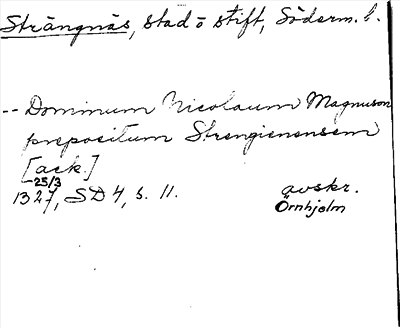 Strängnäs, stad o stift, Söderm. l.
-- Dominum Nicolaum Magnuson
prepositum Strengienensem
[ack.]
25/3
1327, SD 4, s. 11. avskr.
Örnhjelm